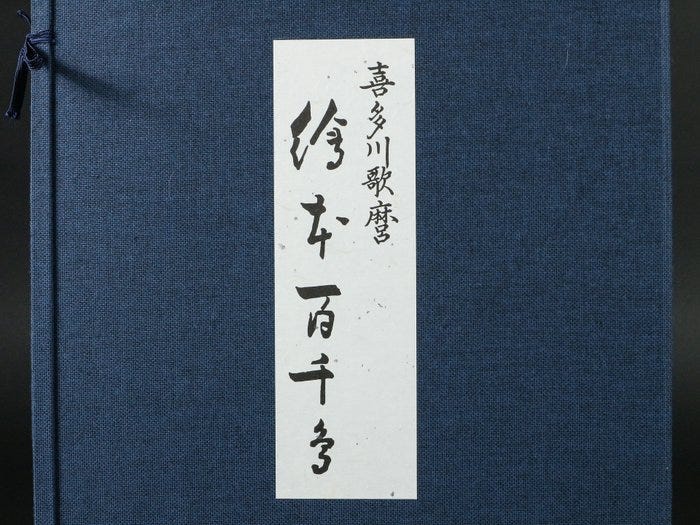 喜多川歌麿
繪本百千鳥